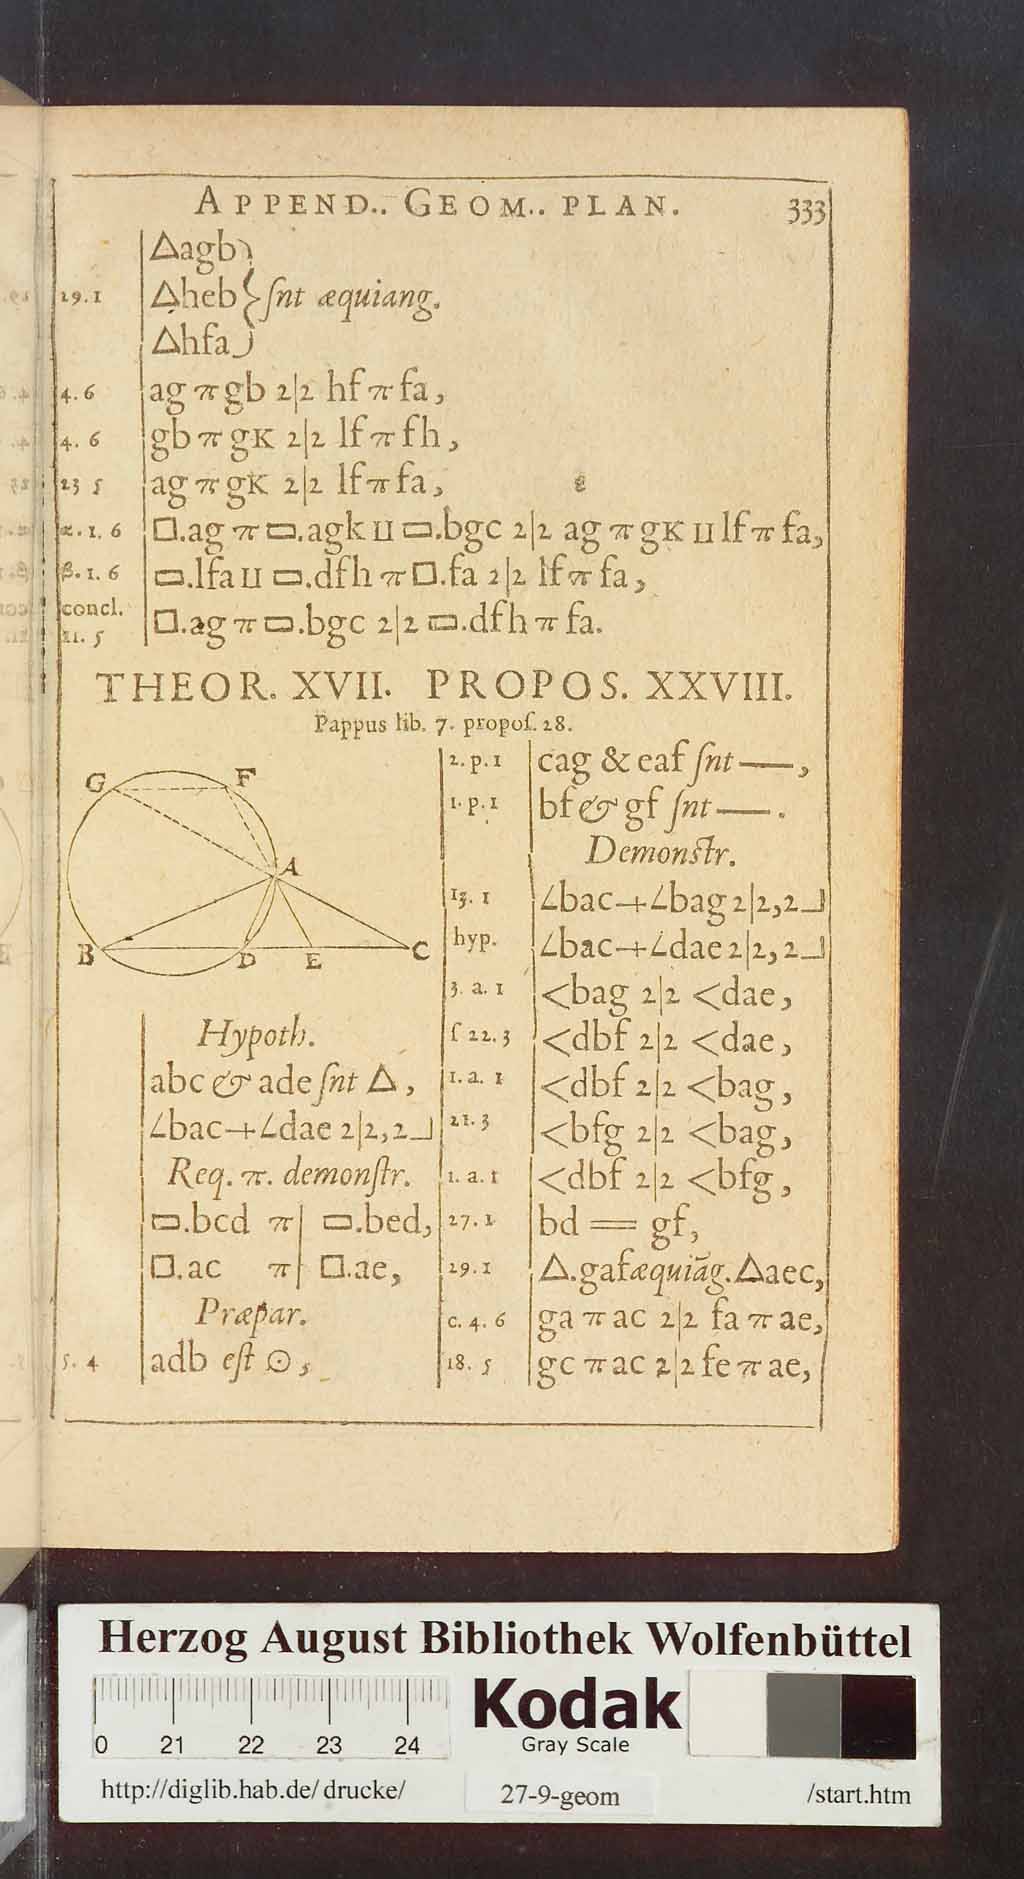 APPEND.. GEOM.. PLAN. 333
△agb
29.1 △heb } ſnt æquiang.
△hfa
4. 6 ag π gb 2|2 hf π fa,
4. 6 gb π gK 2|2 lf π fh,
23 5 ag π gK 2|2 lf π fa,
α. 1. 6 □.ag π ▭.agk ⊔ ▭.bgc 2|2 ag π gK ⊔ lf π fa,
β. 1. 6 ▭.lfa ⊔ ▭.dfh π □.fa 2|2 lf π fa,
concl.
11. 5 □.ag π ▭.bgc 2|2 ▭.dfh π fa.
THEOR. XVII. PROPOS. XXVIII.
Pappus lib. 7. propoſ. 28.
G F
A
B D E C
Hypoth.
abc & ade ſnt △,
∠bac+∠dae 2|2,2⅃
Req. π. demonſtr.
▭.bcd π | ▭.bed,
□.ac π | □.ae,
Præpar.
5. 4 adb eſt ⊙,
2. p. 1 cag & eaf ſnt —,
1. p. 1 bf & gf ſnt —.
Demonſtr.
13. 1 ∠bac+∠bag 2|2,2⅃
hyp. ∠bac+∠dae 2|2,2⅃
3. a. 1 <bag 2|2 <dae,
ſ 22. 3 <dbf 2|2 <dae,
1. a. 1 <dbf 2|2 <bag,
21. 3 <bfg 2|2 <bag,
1. a. 1 <dbf 2|2 <bfg,
27. 1 bd = gf,
29. 1 △.gaf æquiāg. △aec,
c. 4. 6 ga π ac 2|2 fa π ae,
18. 5 gc π ac 2|2 fe π ae,
Herzog August Bibliothek Wolfenbüttel
0 21 22 23 24
Kodak
Gray Scale
http://diglib.hab.de/drucke/ 27-9-geom /start.htm